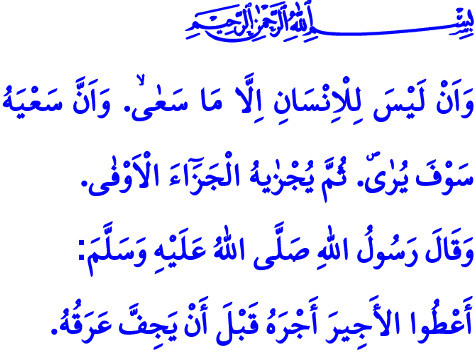 بِسْمِ اللهِ الرَّحْمٰنِ الرَّحِيمِ
وَاَنْ لَيْسَ لِلْاِنْسَانِ اِلَّا مَا سَعٰىۙ. وَاَنَّ سَعْيَهُ
سَوْفَ يُرٰىۖ. ثُمَّ يُجْزٰيهُ الْجَزَٓاءَ الْاَوْفٰى.
وَقَالَ رَسُولُ اللهِ صَلَّى اللهُ عَلَيْهِ وَسَلَّمَ:
أَعْطُوا الأَجِيرَ أَجْرَهُ قَبْلَ أَنْ يَجِفَّ عَرَقُهُ.